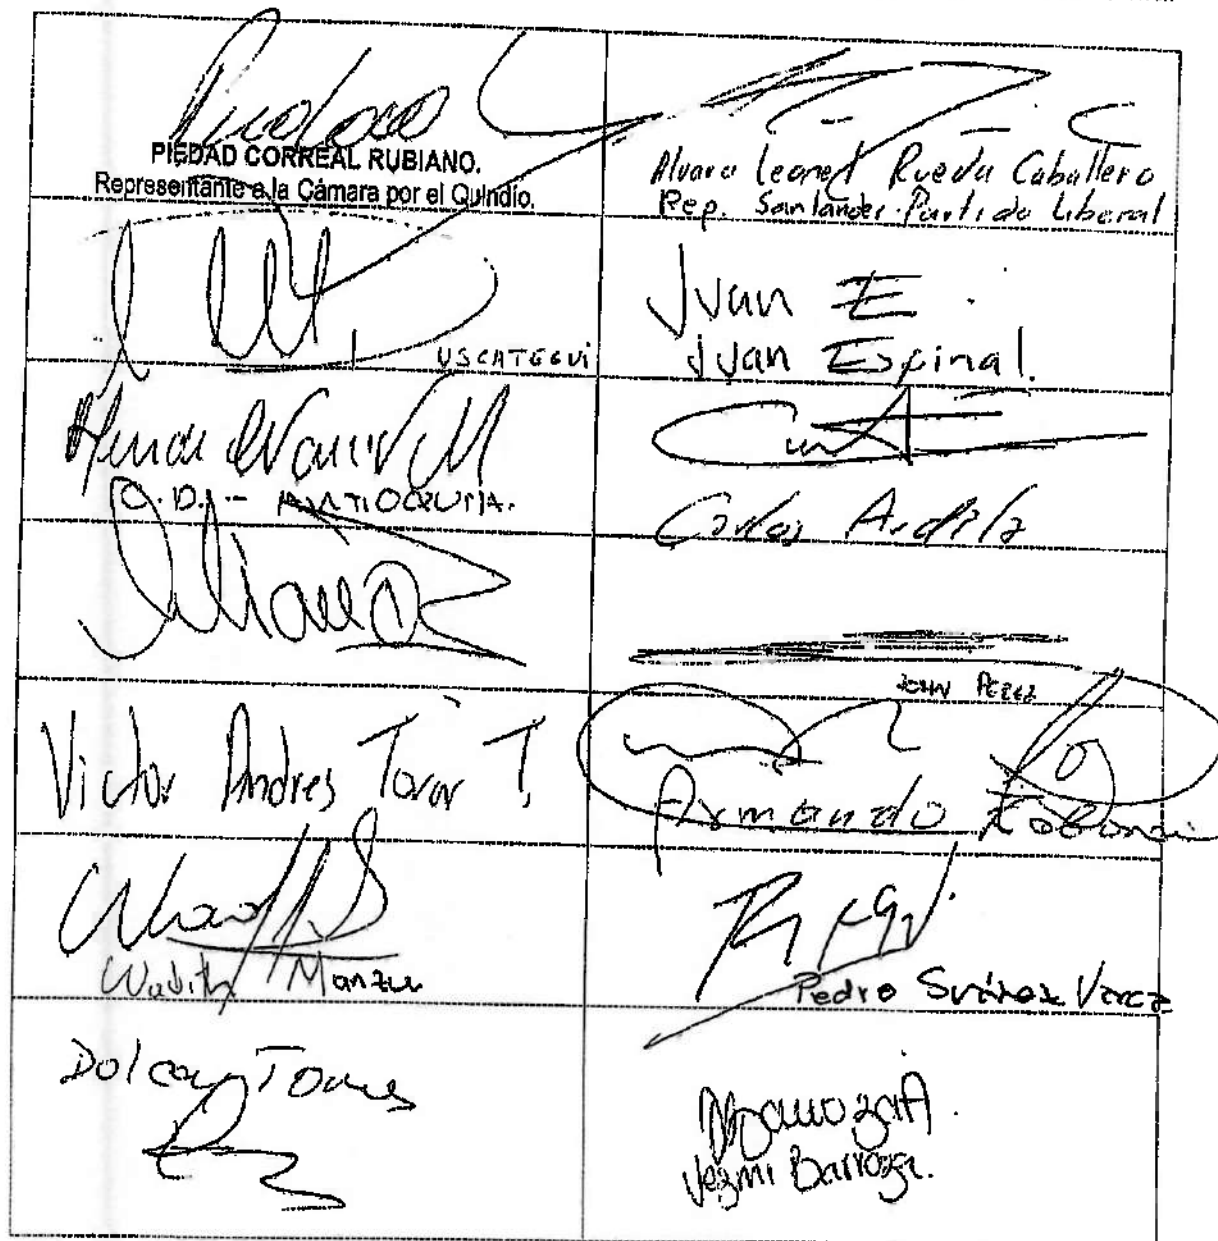 Piedad C
PIEDAD CORREAL RUBIANO.
Representante a la Cámara por el Quindío.
Alvaro Leonel Rueda Caballero
Rep. Santander. Partido Liberal
USCATEGUI
Juan E.
Juan Espinal.
C.D. - ANTIOQUIA.
Carlos Ardila
JOHN PEREZ
Victor Andres Tovar T.
Armando
Wadith Manzur
Pedro Suárez Vacca
Dolcey Torres
Yezmi Barraza.